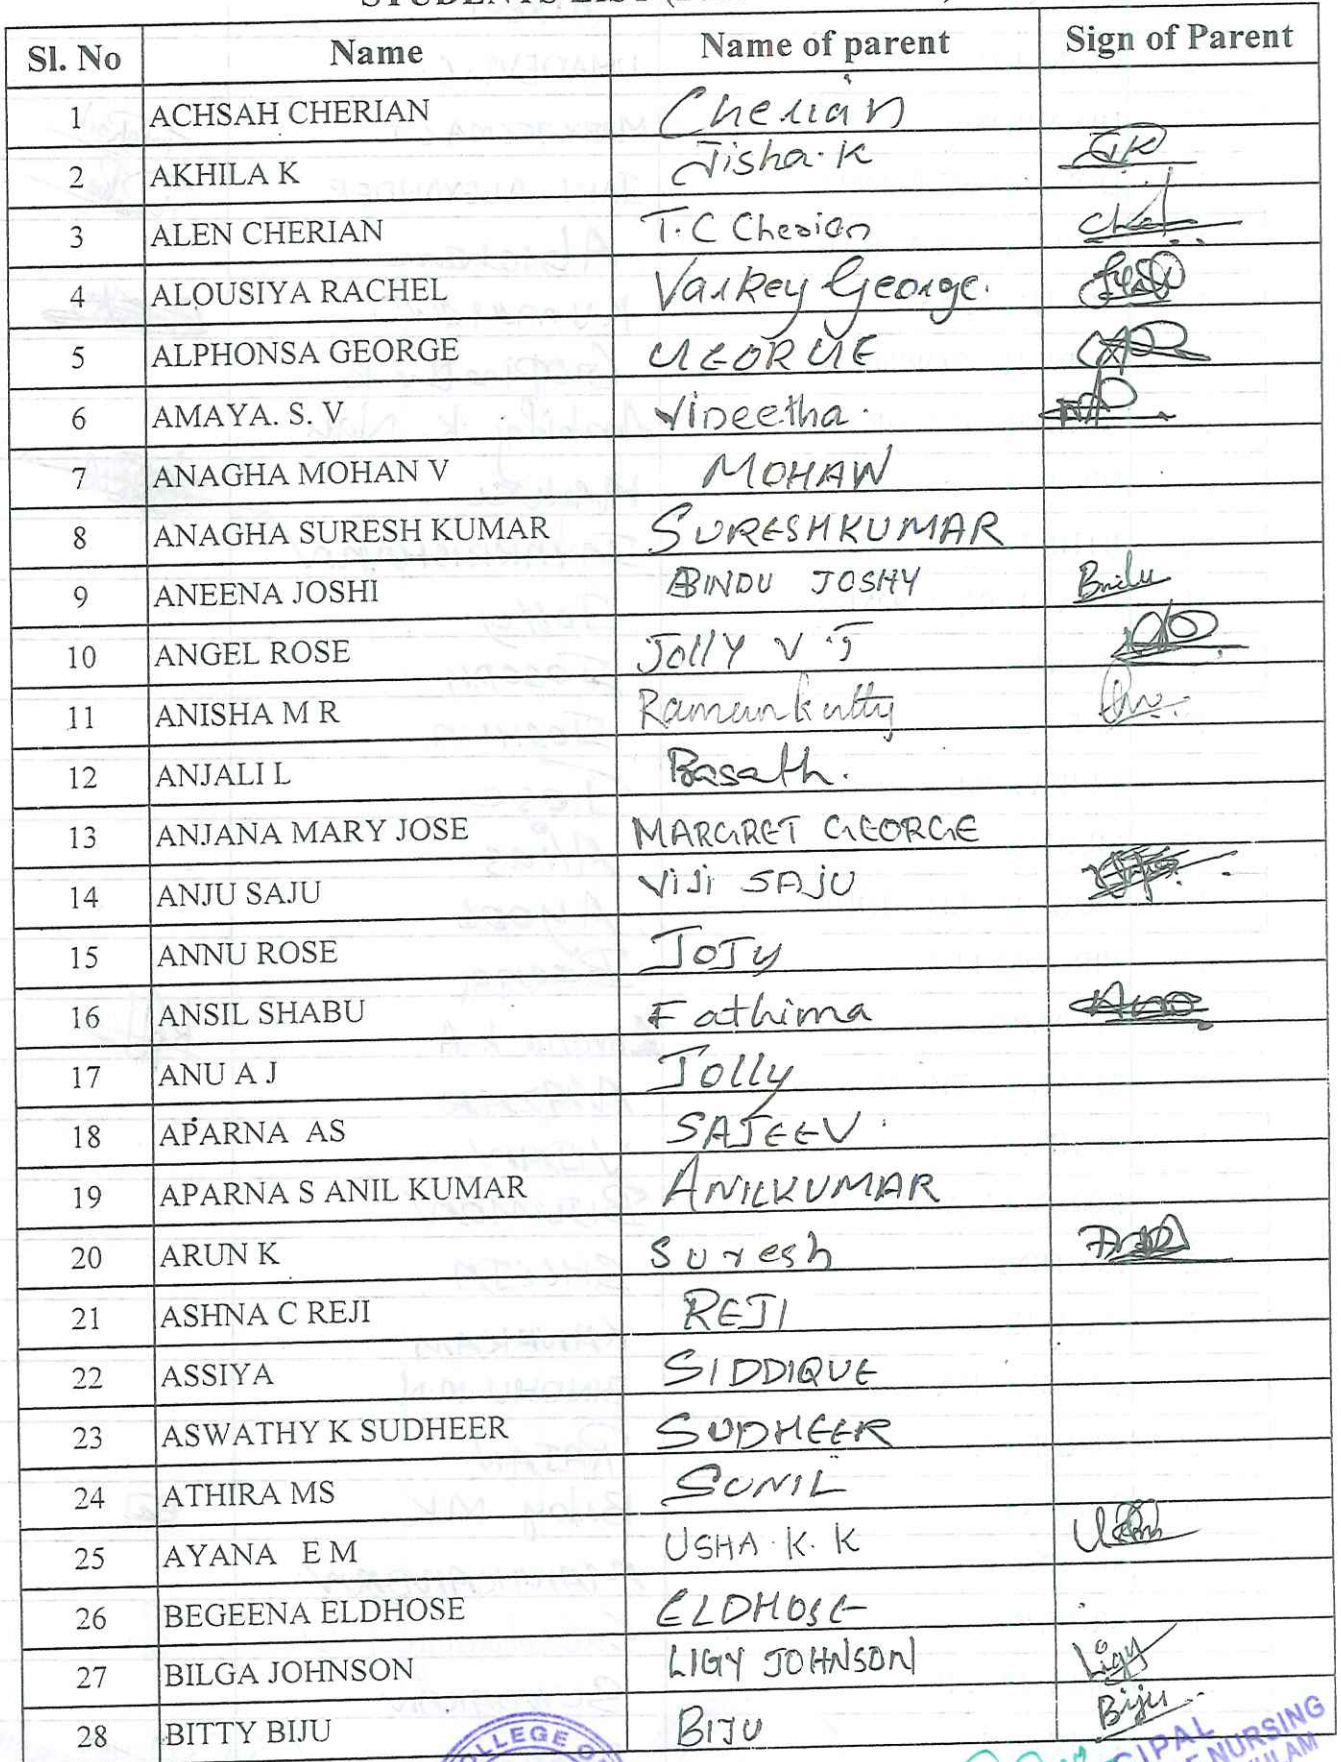 STUDENTS LIST
Sl. No Name Name of parent Sign of Parent
1 ACHSAH CHERIAN Cherian
2 AKHILA K Jisha. K
3 ALEN CHERIAN T. C Cherian
4 ALOUSIYA RACHEL Varkey George.
5 ALPHONSA GEORGE GEORGE
6 AMAYA. S. V Vineetha.
7 ANAGHA MOHAN V MOHAN
8 ANAGHA SURESH KUMAR SURESHKUMAR
9 ANEENA JOSHI BINDU JOSHY Bindu
10 ANGEL ROSE Jolly V J
11 ANISHA M R Ramankutty
12 ANJALI L
13 ANJANA MARY JOSE MARGRET GEORGE
14 ANJU SAJU Viji SAJU
15 ANNU ROSE JOJY
16 ANSIL SHABU Fathima
17 ANU A J Jolly
18 APARNA AS SAJEEV
19 APARNA S ANIL KUMAR ANILKUMAR
20 ARUN K Suresh
21 ASHNA C REJI REJI
22 ASSIYA SIDDIQUE
23 ASWATHY K SUDHEER SUDHEER
24 ATHIRA MS SUNIL
25 AYANA E M USHA. K. K
26 BEGEENA ELDHOSE ELDHOSE
27 BILGA JOHNSON LIGY JOHNSON Ligy
28 BITTY BIJU BIJU Biju
COLLEGE OF
NURSING